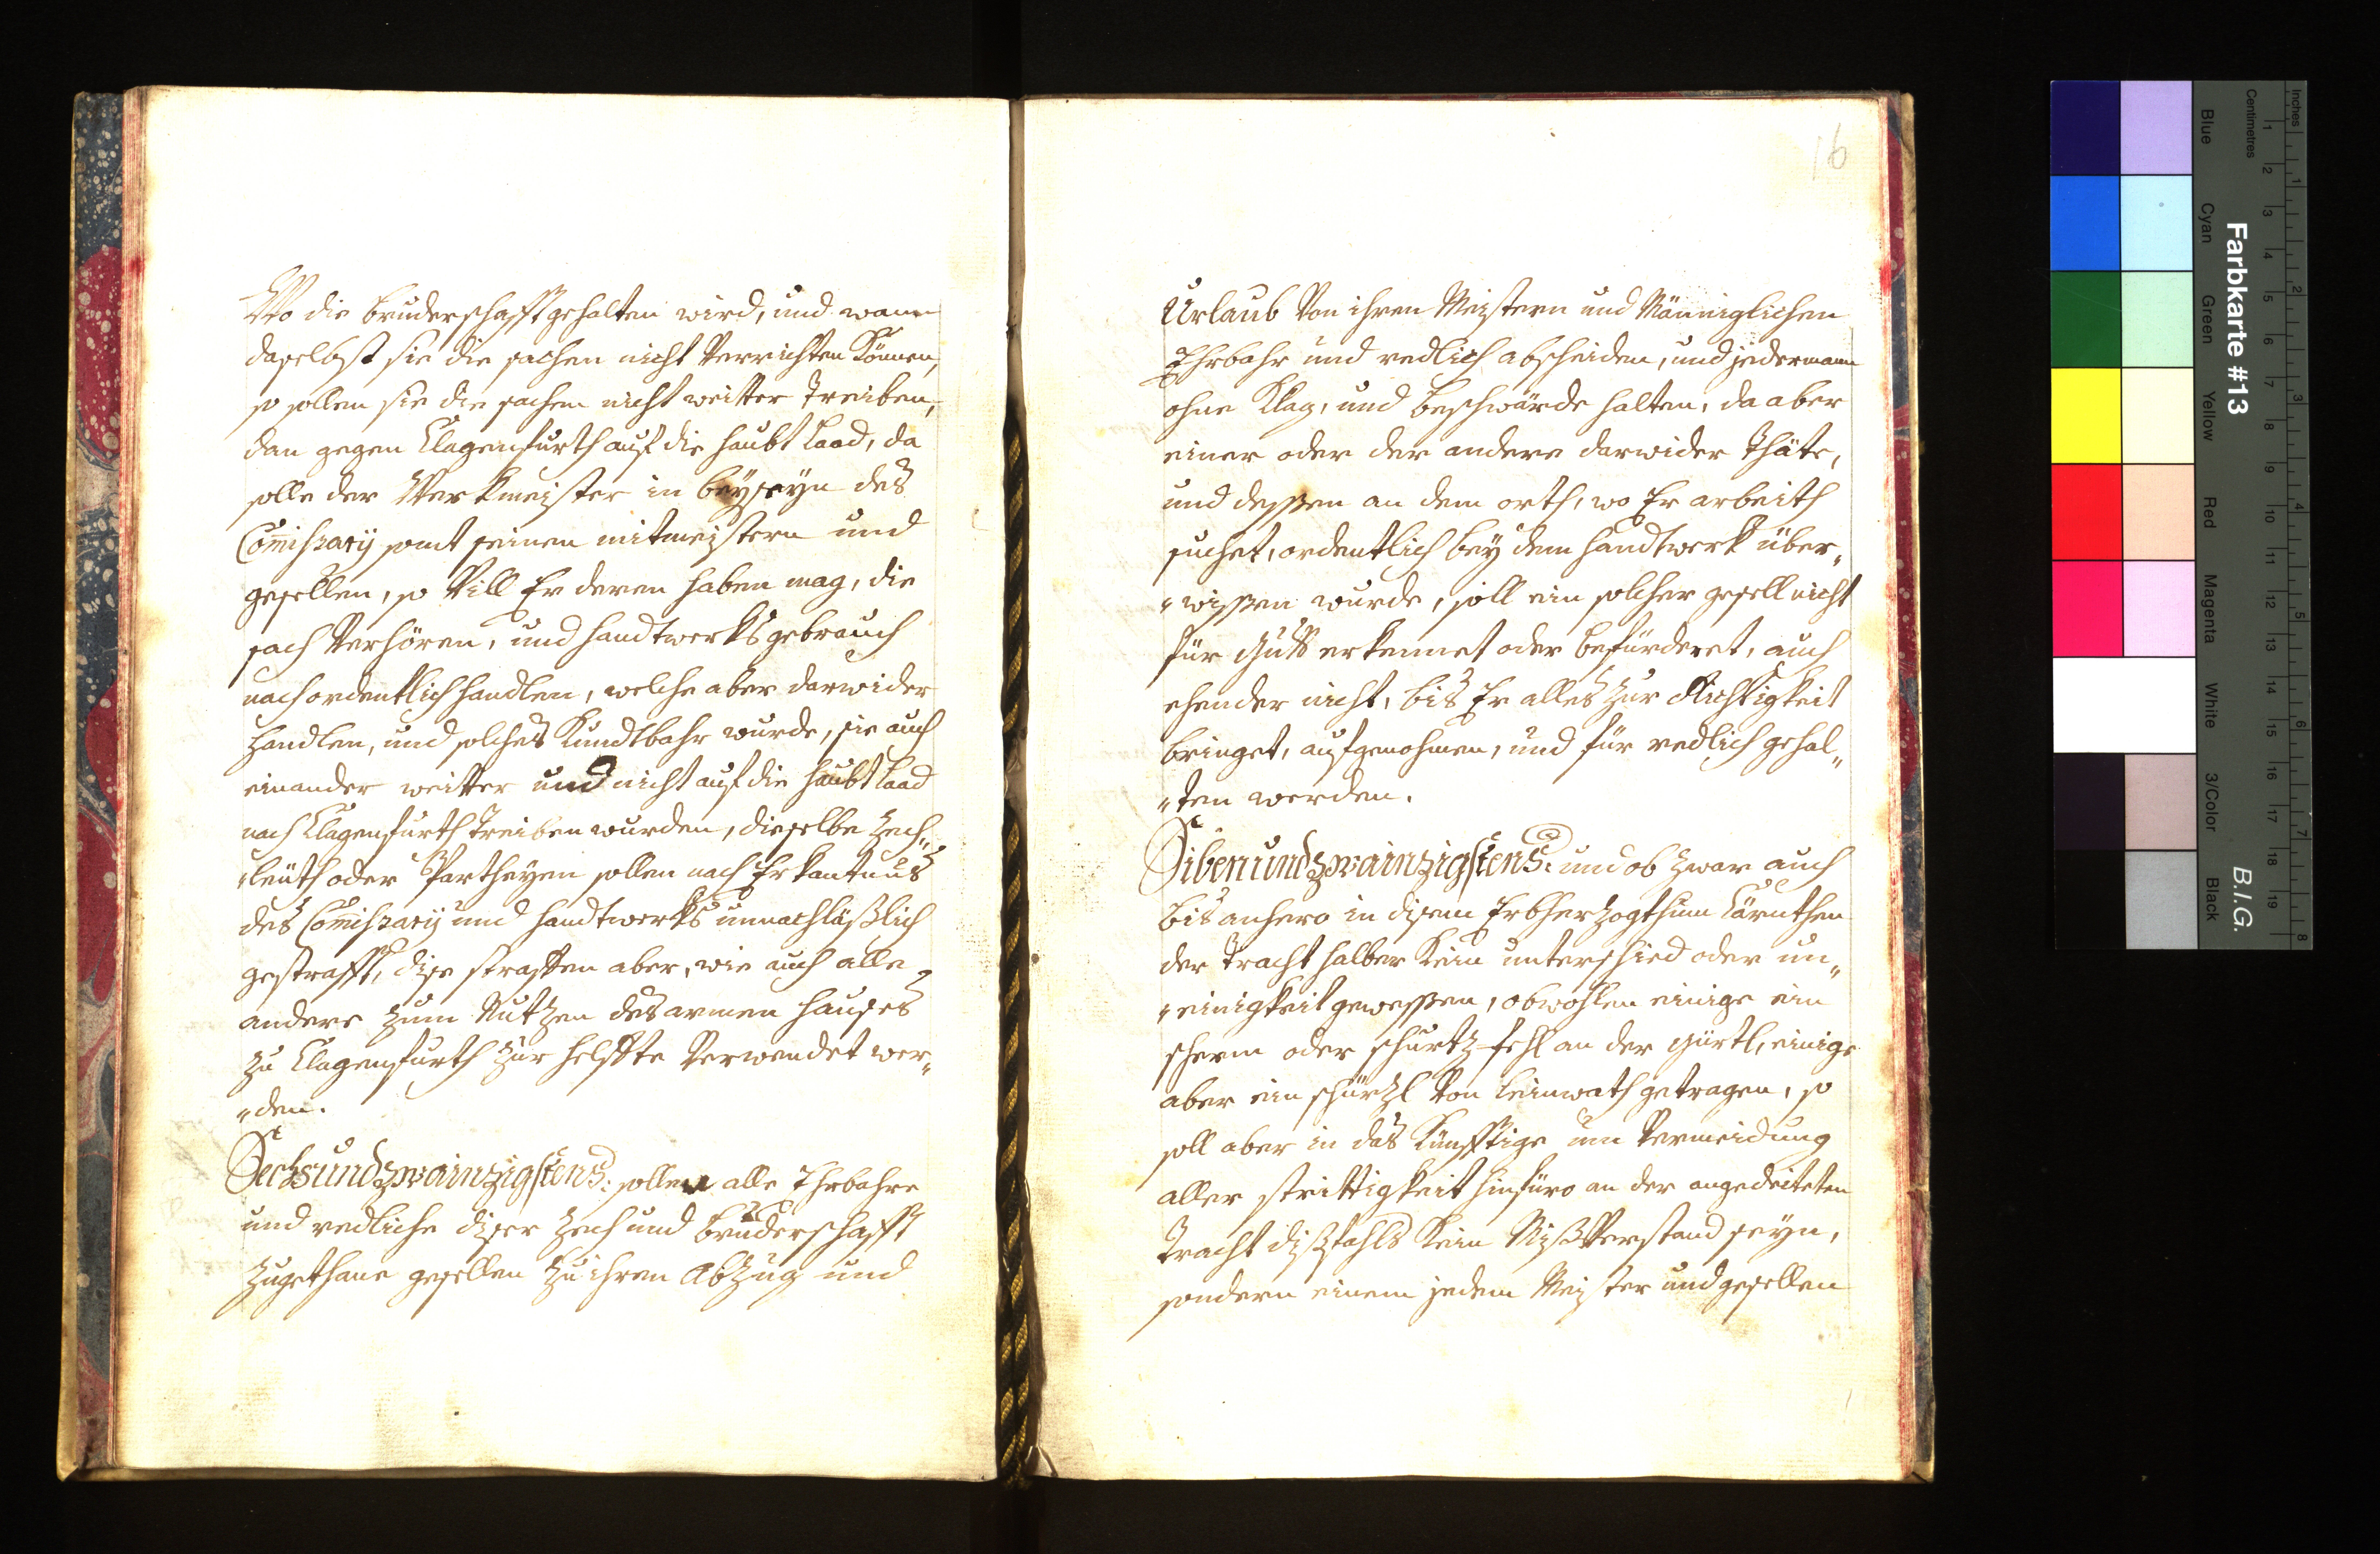 Wo die bruderschafft gehalten wird, und wann
daselbst sie die sachen nicht Verrichten Können,
so sollen sie die sachen nicht weitter Treiben,
dan gegen Clagenfurth auf die haubt laad, da
solle der Werkmeister in beyseyn des
Commissarij samt seinen mitmeistern und
gesellen, so Vill Er deren haben mag, die
sach Verhören, und handtwerks gebrauch
nach ordentlich handlen, welche aber darwider
handlen, und solches Kundtbahr wurde, sie auch
einander weitter und nicht auf die haubt laad
nach Clagenfurth Treiben wurden, dieselbe Zech„
„leüth oder Partheyen sollen nach Erkantnus
des Commissarij und handtwerks unnachläßlich
gestrafft, dise straffen aber, wie auch alle
andere zum Nutzen des armen hauses
zu Clagenfurth zur helffte Verwendet wer„
„den.
Sechsundzwainzigstens: sollen alle Ehrbahre
und redliche diser Zech und bruderschafft
zugethane gesellen zu ihren Abzug und
16
Urlaub Von ihren Meistern und Männiglichen
Ehrbahr und redlich abscheiden, und jedermann
ohne Klag, und beschwärde halten, da aber
einer oder der andere darwider Thäte,
und dessen an dem orth, wo Er arbeith
suchet, ordentlich bey dem handtwerk über„
„wissen wurde, soll ein solcher gesell nicht
für gutt erkennet oder befürderet, auch
ehender nicht, bis Er alles zur Richtigkeit
bringet, aufgenohmen, und für redlich gehal„
„ten werden.
Sibenundzwainzigstens: und ob zwar auch
bis anhero in disem Erbherzogthum Cärnthen
der Tracht halber Kein unterschied oder un„
„einigkeit gewessen, obwohlen einige ein
scherm oder schurtz-fehl an der gürtl, einige
aber ein schürzl Von leinwath getragen, so
soll aber in das Künfftige um Vermeidung
aller strittigkeit hinfüro an der angedeiteten
Tracht dißfahls Kein MißVerstand seyn,
sondern einem jedem Meister und gesellen
Inches
Centimetres
Farbkarte #13
B.I.G.
Blue
Cyan
Green
Yellow
Red
Magenta
White
3/Color
Black